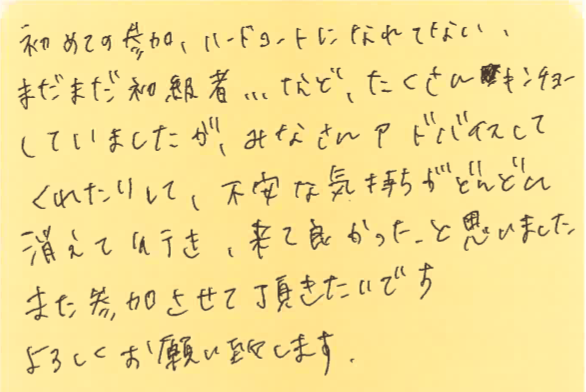 初めての参加、ハードコートになれてない、
まだまだ初級者...など、たくさんキンチョー
していましたが、みなさんアドバイスして
くれたりして、不安な気持ちがどんどん
消えて行き、来て良かったと思いました
また参加させて頂きたいです
よろしくお願い致します.